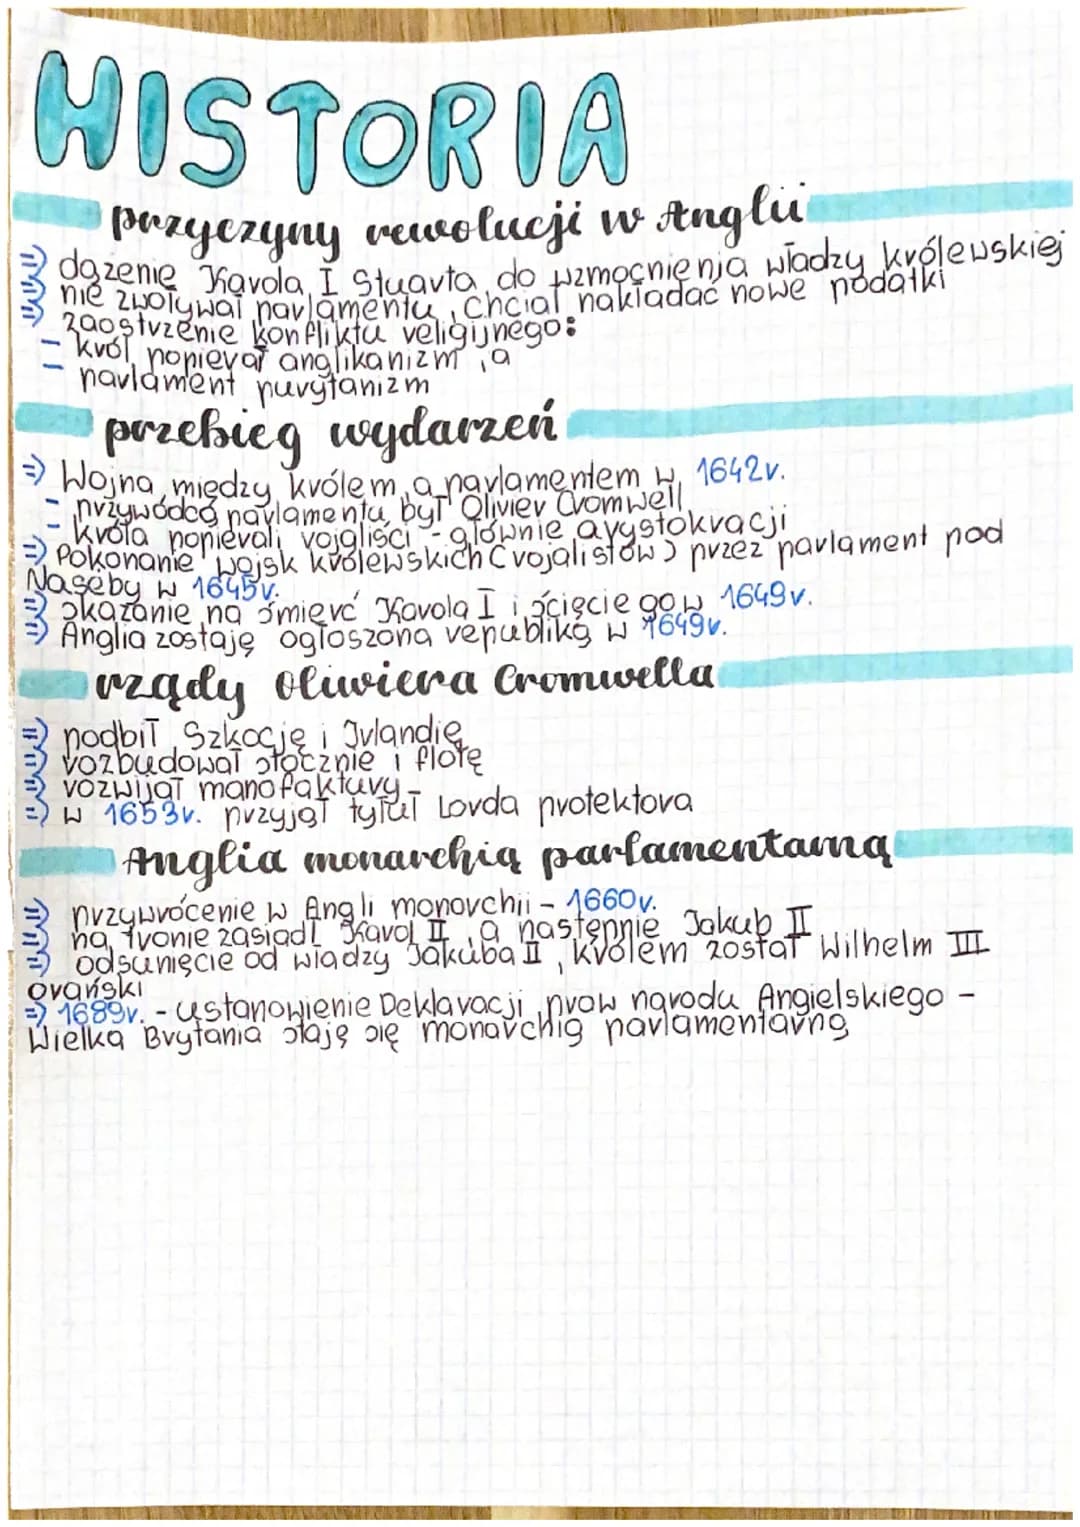 HISTORIA
przyczyny rewolucji w Anglii
=) dążenie Karola I Stuarta do wzmocnienia władzy królewskiej
=) nie zwoływał parlamentu, chciał nakładać nowe podatki
=) zaostrzenie konfliktu religijnego:
- król popierał anglikanizm, a
- parlament purytanizm
przebieg wydarzeń
=) Wojna między królem a parlamentem w 1642r.
- przywódcą parlamentu był Olivier Cromwell
- króla popierali rojaliści - głównie arystokracji
=) Pokonanie wojsk królewskich (rojalistów) przez parlament pod
Naseby w 1645r.
=) skazanie na śmierć Karola I i ścięcie go w 1649r.
=) Anglia zostaję ogłoszona republiką w 1649r.
rządy Oliwiera Cromwella
=) podbił Szkocję i Irlandię
=) rozbudował stocznie i flotę
=) rozwijał manofaktury
=) w 1653r. przyjął tytuł Lorda protektora
Anglia monarchią parlamentarną
=) przywrócenie w Angli monorchii - 1660r.
=) na tronie zasiadł Karol II, a następnie Jakub II
=) odsunięcie od władzy Jakuba II, królem został Wilhelm III
orański
=) 1689r. - ustanowienie Deklaracji praw narodu Angielskiego -
Wielka Brytania staję się monarchią parlamentarną